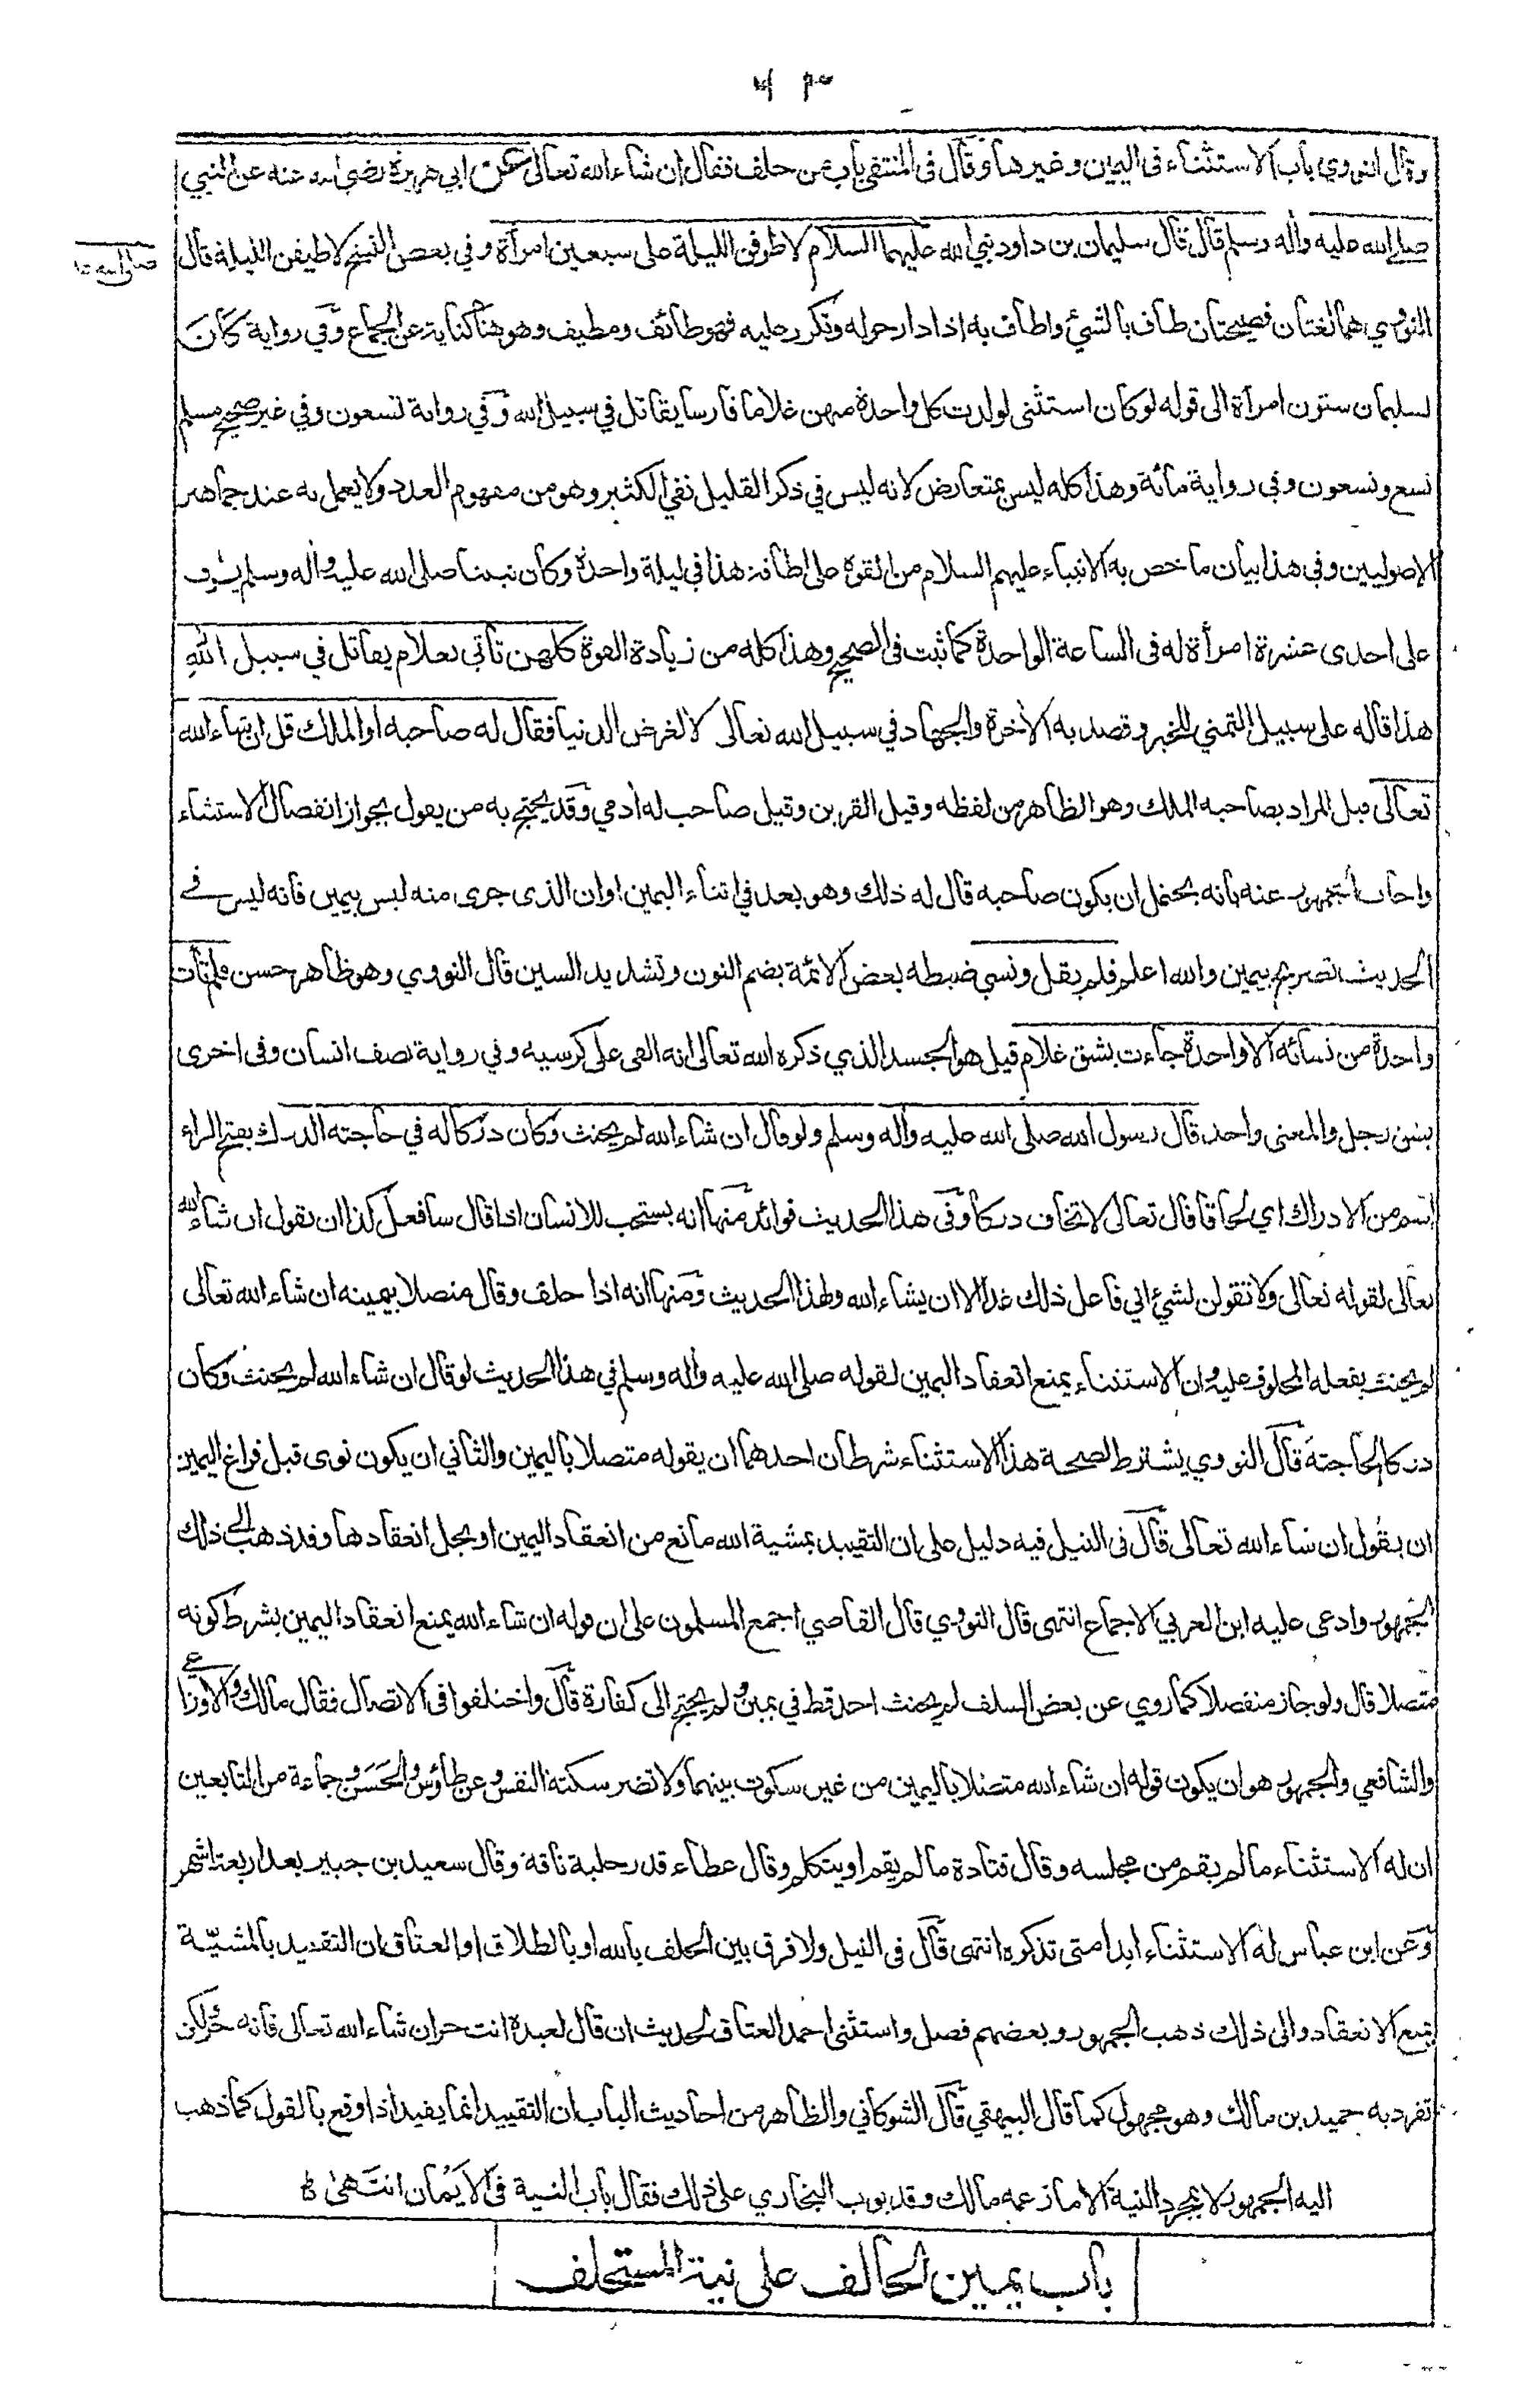 وقال النووي باب الاستثناء فى اليمين وغيرها وقال فى المنتقى باب من حلف فقال ان شاء الله تعالى عن ابي هريرة رضي الله عنه عن النبي
صلى الله عليه واله وسلم قال قال سليمان بن داود نبي الله عليهما السلام لاطوفن الليلة على سبعين امرأة وفي بعض النسخ لاطيفن الليلة قال
صلى الله
النووي هما لغتان فصيحتان طاف بالشئ واطاف به اذا دار حوله وتكرر عليه فهو طائف ومطيف وهو هنا كناية عن الجماع وفي رواية كان
لسليمان ستون امرأة الى قوله لو كان استثنى لولدت كل واحدة منهن غلاما فارسا يقاتل في سبيل الله وفي رواية تسعون وفي غير صحيح مسلم
تسع وتسعون وفى رواية مائة وهذا كله ليس بمتعارض لانه ليس في ذكر القليل نفي الكثير وهو من مفهوم العدد ولا يعمل به عند جماهير
الاصوليين وفى هذا بيان ما خص به الانبياء عليهم السلام من القوة على اطاقة هذا في ليلة واحدة وكان نبينا صلى الله عليه واله وسلم يطوف
على احدى عشرة امرأة له فى الساعة الواحدة كما ثبت فى الصحيح وهذا كله من زيادة القوة كلهن تأتي بغلام يقاتل في سبيل الله
هذا قاله على سبيل التمني للخير وقصد به الاخرة والجهاد في سبيل الله تعالى لا لغرض الدنيا فقال له صاحبه او الملك قل ان شاء الله
تعالى قيل المراد بصاحبه الملك وهو الظاهر من لفظه وقيل القرين وقيل صاحب له أدمي وقد يحتج به من يقول بجواز انفصال الاستثناء
واجاب الجمهور عنه بانه يحتمل ان يكون صاحبه قال له ذلك وهو بعد في اثناء اليمين او ان الذى جرى منه ليس بيمين فانه ليس فے
الحديث تصريح بيمين والله اعلم فلم يقل ونسي ضبطه بعض الائمة بضم النون وتشديد السين قال النووي وهو ظاهر حسن فلم تأت
واحدة من نسائه الا واحدة جاءت بشق غلام قيل هو الجسد الذي ذكره الله تعالى انه القى على كرسيه وفي رواية نصف انسان وفى اخرى
بشق رجل والمعنى واحد قال رسول الله صلى الله عليه واله وسلم ولو قال ان شاء الله لم يحنث وكان دركا له في حاجته الدرك بفتح الراء
اسم من الادراك اي لحاقا قال تعالى لا تخاف دركا وفى هذا الحديث فوائد منها انه يستحب للانسان اذا قال سافعل كذا ان يقول ان شاء الله
تعالى لقوله تعالى ولا تقولن لشئ اني فاعل ذلك غدا الا ان يشاء الله ولهذا الحديث ومنها انه اذا حلف وقال متصلا بيمينه ان شاء الله تعالى
لم يحنث بفعله المحلوف عليه وان الاستثناء يمنع انعقاد اليمين لقوله صلى الله عليه واله وسلم في هذا الحديث لو قال ان شاء الله لم يحنث وكان
دركا لحاجته قال النووي يشترط لصحة هذا الاستثناء شرطان احدهما ان يقوله متصلا باليمين والثاني ان يكون نوى قبل فراغ اليمين
ان يقول ان شاء الله تعالى قال فى النيل فيه دليل على ان التقييد بمشية الله مانع من انعقاد اليمين او يحل انعقادها وقد ذهب الى ذلك
الجمهور وادعى عليه ابن العربي الاجماع انتهى قال النووي قال القاضي اجمع المسلمون على ان قوله ان شاء الله يمنع انعقاد اليمين بشرط كونه
متصلا قال ولو جاز منفصلا كما روي عن بعض السلف لم يحنث احد قط في يمين ولم يحتج الى كفارة قال واختلفوا فى الاتصال فقال مالك والاوزاعے
والشافعي والجمهور هو ان يكون قوله ان شاء الله متصلا باليمين من غير سكوت بينهما ولا تضر سكتة النفس وعن طاؤس والحسن وجماعة من التابعين
ان له الاستثناء ما لم يقم من مجلسه وقال قتادة ما لم يقم او يتكلم وقال عطاء قدر حلبة ناقة وقال سعيد بن جبير بعد اربعة اشهر
وعن ابن عباس له الاستثناء ابدا متى تذكره انتهى قال فى النيل ولا فرق بين الحلف بالله او بالطلاق او العتاق ان التقييد بالمشيّة
يمنع الانعقاد والى ذلك ذهب الجمهور وبعضهم فصل واستثنى احمد العتاق لحديث ان قال لعبدة انت حر ان شاء الله تعالى فانه حر لكن
تفرد به حميد بن مالك وهو مجهول كما قال البيهقي قال الشوكاني والظاهر من احاديث الباب ان التقييد انما يفيد اذا وقع بالقول كما ذهب
اليه الجمهور لا بمجرد النية الا ما زعمه مالك وقد بوب البخاري على ذلك فقال باب النية فى الايمان انتهى
باب يمين الحالف على نية المستحلف